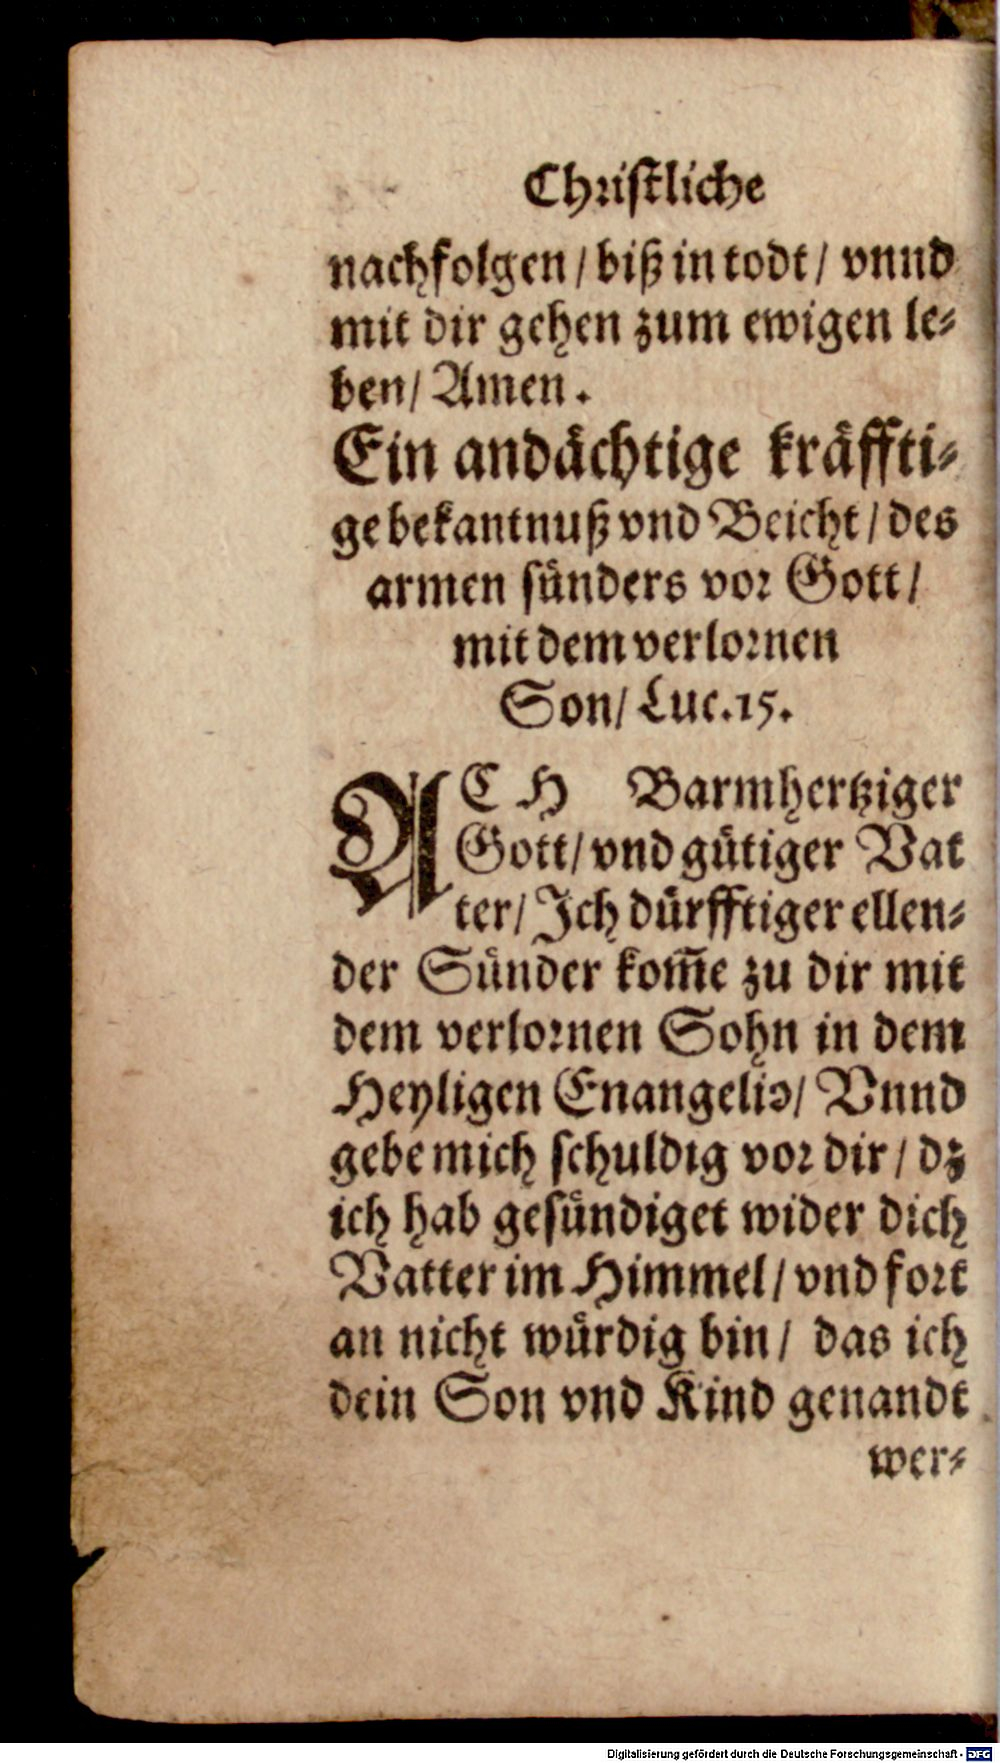 Christliche
nachfolgen / biß in todt / vnnd
mit dir gehen zum ewigen le-
ben / Amen.
Ein andächtige kräffti-
ge bekantnuß vnd Beicht / des
armen sünders vor Gott /
mit dem verlornen
Son / Luc. 15.
ACH Barmhertziger
Gott / vnd gütiger Vat
ter / Ich dürfftiger ellen-
der Sünder kom̃e zu dir mit
dem verlornen Sohn in dem
Heyligen Enangelio / Vnnd
gebe mich schuldig vor dir / dz
ich hab gesündiget wider dich
Vatter im Himmel / vnd fort
an nicht würdig bin / das ich
dein Son vnd Kind genandt
wer-
Digitalisierung gefördert durch die Deutsche Forschungsgemeinschaft - DFG